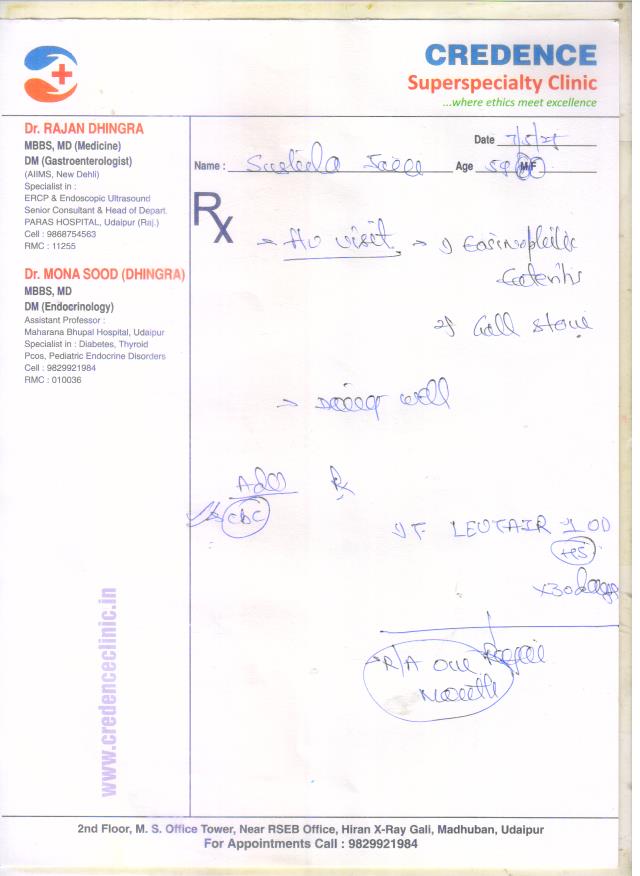 CREDENCE
Superspecialty Clinic
...where ethics meet excellence
Dr. RAJAN DHINGRA
MBBS, MD (Medicine)
DM (Gastroenterologist)
(AIIMS, New Delhi)
Specialist in :
ERCP & Endoscopic Ultrasound
Senior Consultant & Head of Depart.
PARAS HOSPITAL, Udaipur (Raj.)
Cell : 9868754563
RMC : 11255
Dr. MONA SOOD (DHINGRA)
MBBS, MD
DM (Endocrinology)
Assistant Professor :
Maharana Bhupal Hospital, Udaipur
Specialist in : Diabetes, Thyroid
Pcos, Pediatric Endocrine Disorders
Cell : 9829921984
RMC : 010036
www.credenceclinic.in
Date
Name : Age M/F
Rx
→ visit → 1) Eosinophilic
2) Gall stone
→ doing well
Adv Rx
CBC
1) T. LEUTAIR 1 OD
HS
x30 days
R/A one
month
2nd Floor, M. S. Office Tower, Near RSEB Office, Hiran X-Ray Gali, Madhuban, Udaipur
For Appointments Call : 9829921984